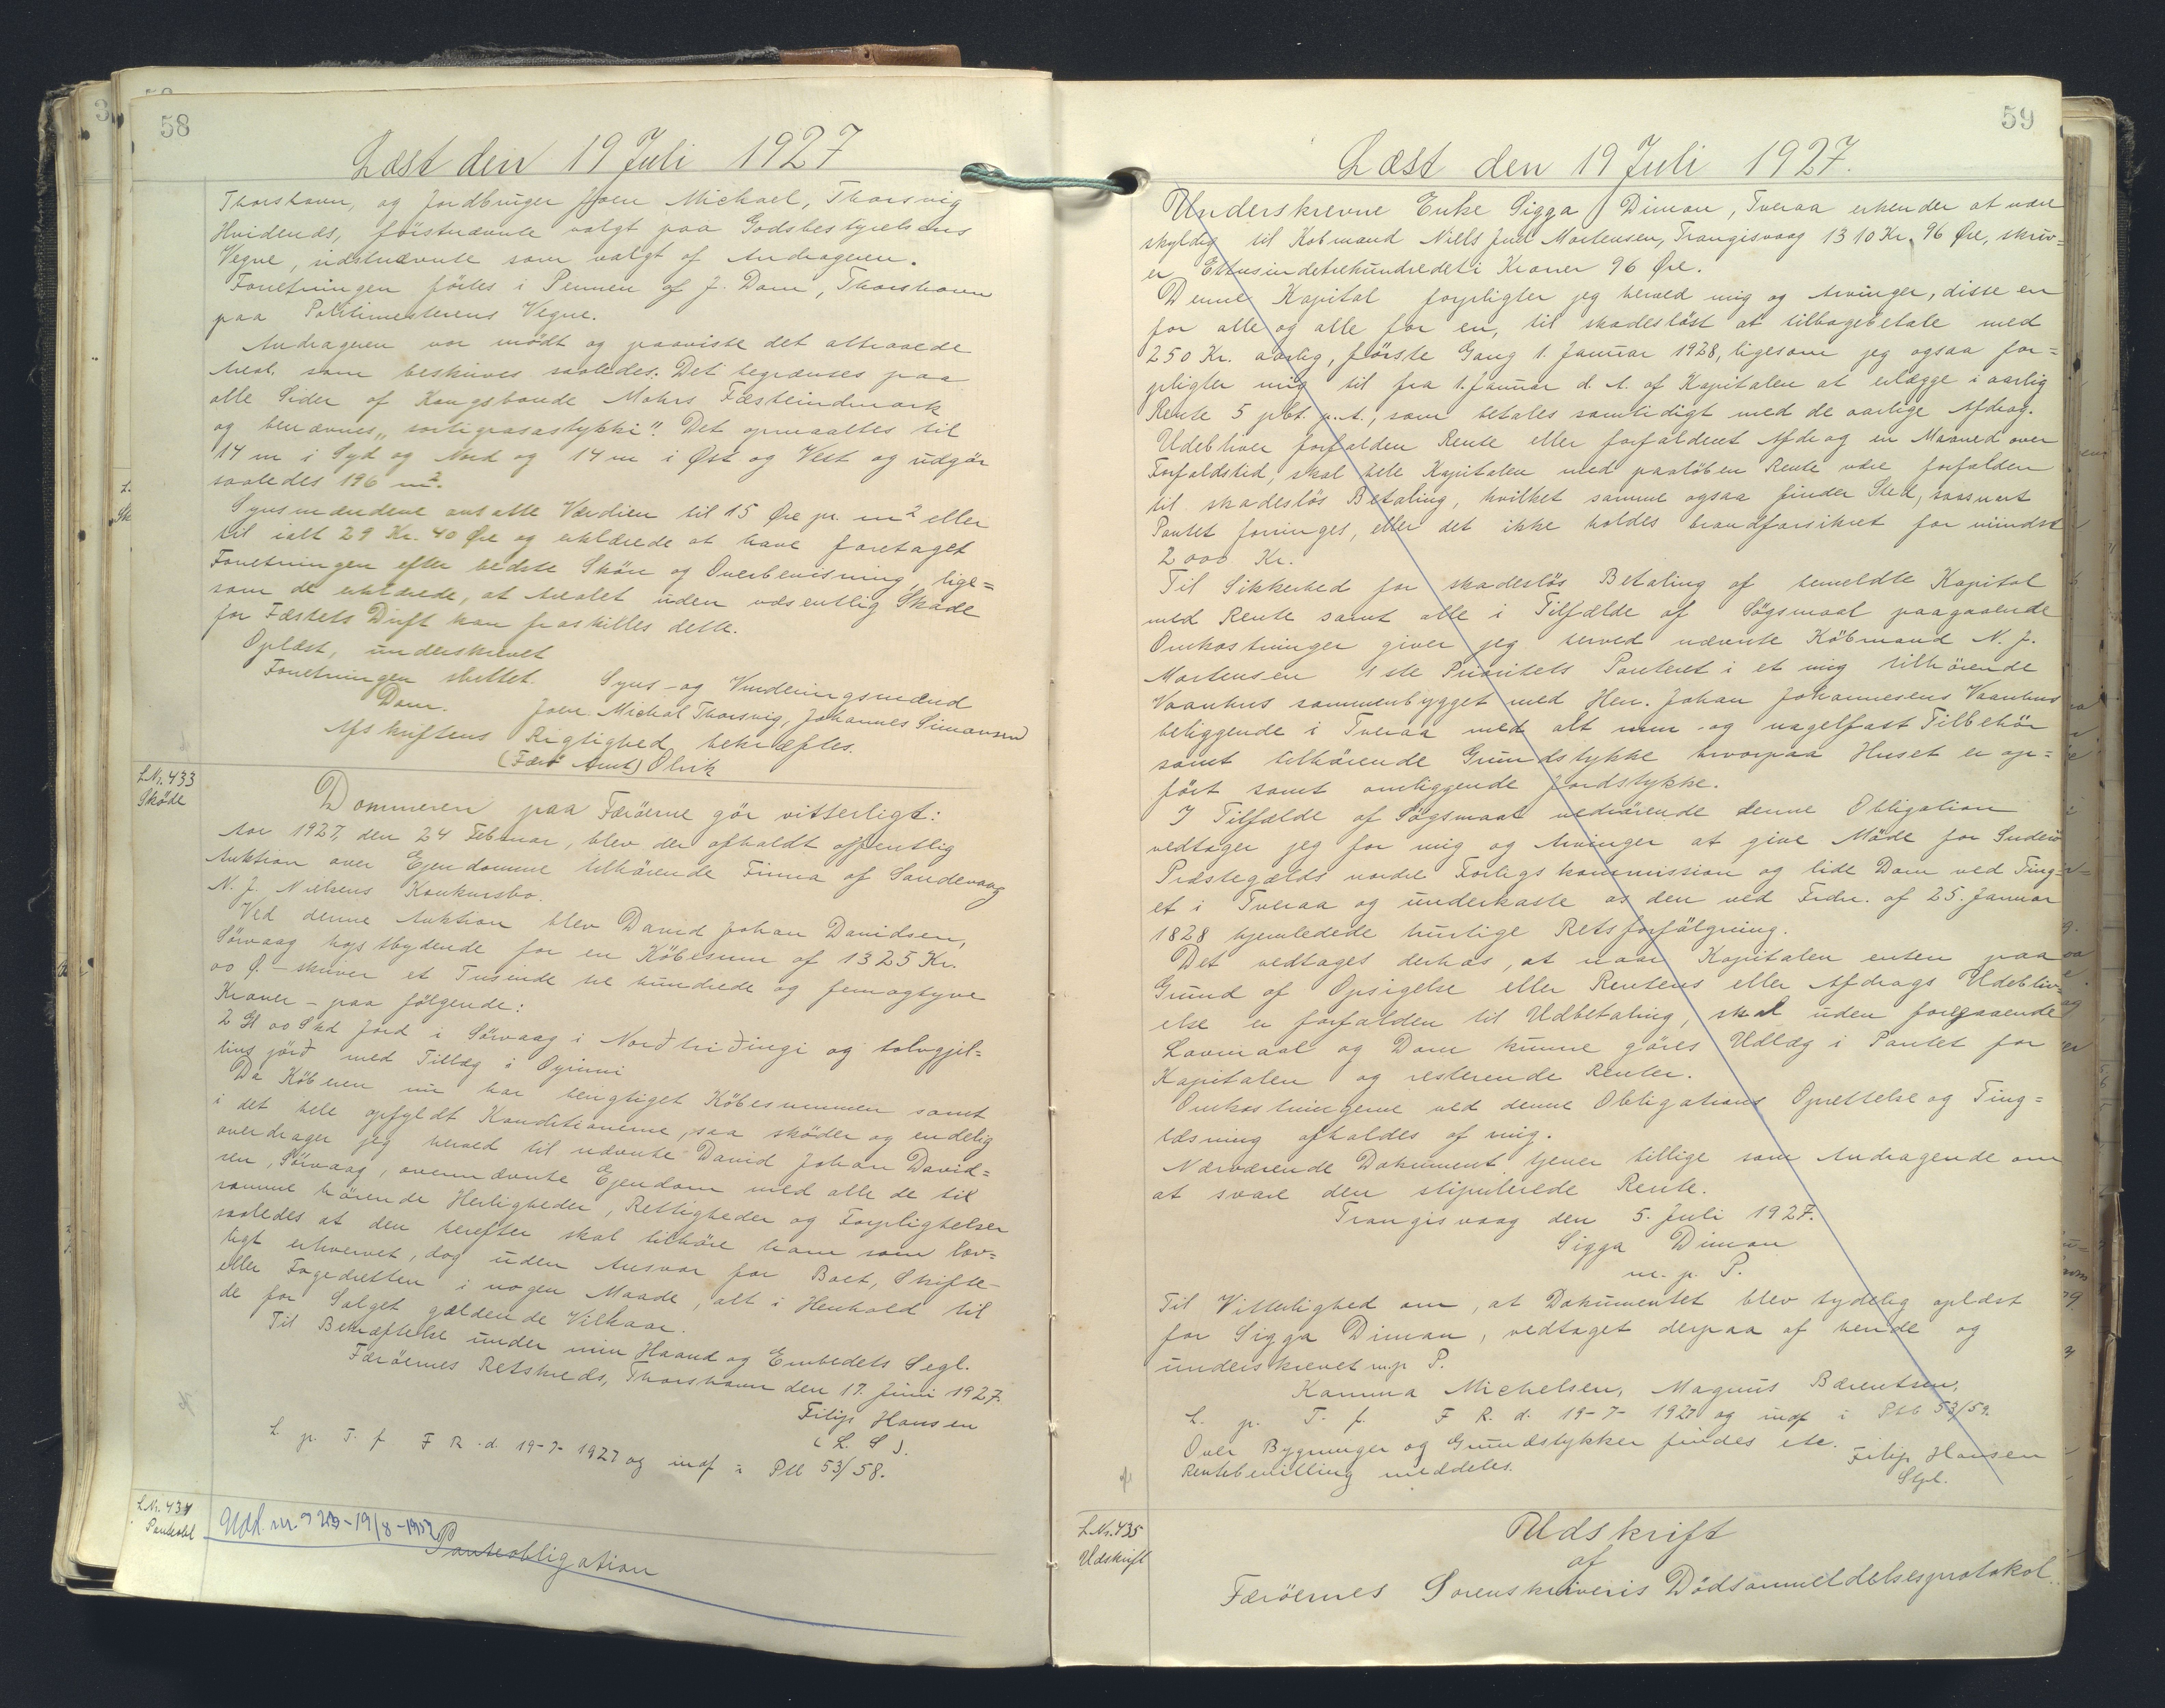 58
Læst den 19 Juli 1927
Thorshavn, og Jordbruger Joen Michael, Thorsvig
Hvidenæs, förstnævnte valgt paa Godsbestyrelsens
Vegne, sidstnævnte som valgt af Andrageren.
Forretningen förtes i Pennen af J. Dam, Thorshavn
paa Politimesterens Vegne.
Andrageren var mödt og paaviste det attraaede
Areal. som beskrives saaledes. Det begrænses paa
alle Sider af Kongsbonde Mohrs Fæsteindmark
og benævnes „sortigrasastykki". Det opmaaltes til
14 m i Syd og Nord og 14 m i Øst og Vest og udgör
saaledes 196 m².
Synsmændene ansatte Værdien til 15 Øre pr. m² eller
til ialt 29 Kr. 40 Øre og erklærede at have foretaget
Forretningen efter bedste Skön og Overbevisning, lige=
som de erklærede, at Arealet uden væsentlig Skade
for Fæstets Drift kan fraskilles dette.
Oplæst, underskrevet
Forretningen sluttet. Syns- og Vurderingsmænd
Dam. Joen Michal Thorsvig, Johannes Simonsen
Afskriftens Rigtighed bekræftes.
(Færö Amt) Olrik
L.Nr. 433
Sköde
Dommeren paa Færöerne gör vitterligt:
Aar 1927, den 24 Februar, blev der afholdt offentlig
Auktion over Ejendomme tilhörende Firma af Sandevaag
N. J. Nielsens Konkursbo.
Ved denne Auktion blev David Johan Davidsen,
Sörvaag højstbydende for en Köbesum af 1325 Kr.
00 Ø. - skriver et Tusende tre hundrede og femogtyve
Kroner - paa følgende:
2 Gl 00 Skd Jord i Sörvaag i Norðtriðingi og tolvgjil=
lins jörð med Tillæg i Oyrinni
Da Köberen nu har berigtiget Köbesummen samt
i det hele opfyldt Konditionerne, saa sköder og endelig
overdrager jeg herved til nævnte David Johan David=
sen, Sörvaag, ovennævnte Ejendom med alle de til
samme hörende Herligheder, Rettigheder og Forpligtelser
saaledes at den herefter skal tilhöre ham som lov=
ligt erhvervet, dog uden Ansvar for Boet, Skifte-
eller Fogedretten i nogen Maade, alt i Henhold til
de for Salget gældende Vilkaar.
Til Bekræftelse under min Haand og Embedets Segl.
Færöernes Retskreds, Thorshavn den 17. Juni 1927.
Filip Hansen
(L. S).
L. p. T. f. F R. d. 19-7- 1927 og indf i Ptl 53/58.
L.Nr. 434
Panteobl
Panteobligation
59
Læst den 19 Juli 1927.
Underskrevne Enke Sigga Dimon, Tveraa erkender at være
skyldig til Købmand Niells Juul Mortensen, Trangisvaag 1310 Kr. 96 Øre, skriv=
er Ettusindetrehundredeti Kroner 96 Øre.
Denne Kapital forpligter jeg herved mig og Arvinger, disse en
for alle og alle for en, til skadeslöst at tilbagebetale med
250 Kr. aarlig, förste Gang 1. Januar 1928, ligesom jeg ogsaa for=
pligter mig til fra 1. Januar d. A. af Kapitalen at erlægge i aarlig
Rente 5 pct. p.A., som betales samtidigt med de aarlige Afdrag.
Udebliver forfalden Rente eller forfaldent Afdrag en Maaned over
Forfaldstid, skal hele Kapitalen med paalöben Rente være forfalden
til skadeslös Betaling, hvilket samme ogsaa finder Sted, saasnart
Pantet forringes, eller det ikke holdes brandforsikret for mindst
2000 Kr.
Til Sikkerhed for skadeslös Betaling af bemeldte Kapital
med Rente samt alle i Tilfælde af Sögsmaal paagaaende
Omkostninger giver jeg herved nævnte Köbmand N. J.
Mortensen 1ste Prioritets Panteret i et mig tilhörende
Vaanhus sammenbygget med Hen. Johan Johannesens Vaanhus
beliggende i Tveraa med alt mur- og nagelfast Tilbehör
samt tilhörende Grundstykke hvorpaa Huset er op=
fört samt omliggende Jordstykke.
I Tilfælde af Sögsmaal vedrörende denne Obligation
vedtager jeg for mig og Arvinger at give Möde for Suderö
Præstegælds nordre Forligskommission og lide Dom ved Ting=
et i Tveraa og underkaste os den ved Frdn. af 25. Januar
1828 hjemledede hurtige Retsforfölgning.
Det vedtages derhos, at naar Kapitalen enten paa
Grund af Opsigelse eller Rentens eller Afdrags Udebliv=
else er forfalden til Udbetaling, skal uden foregaaende
Lovmaal og Dom kunne göres Udlæg i Pantet for
Kapitalen og resterende Renter.
Omkostningerne ved denne Obligations Oprettelse og Ting=
læsning afholdes af mig.
Nærværende Dokument tjener tillige som Andragende om
at svare den stipulerede Rente.
Trangisvaag den 5. Juli 1927.
Sigga Dimon
m. p. P.
Til Vitterlighed om, at Dokumentet blev tydelig oplæst
for Sigga Dimon, vedtaget derpaa af hende og
underskrevet m.p. P.
Kamma Michelsen, Magnus Bærentsen,
L. p. T. f. F R. d. 19-7- 1927 og indf i Ptb 53/59.
Over Bygninger og Grundstykker findes ete.
Rentebevilling meddeles.
Filip Hansen
Stpl.
L.Nr. 435
Udskrift
Udskrift
af
Færöernes Sorenskriveris Dödsanmeldelsesprotokol.